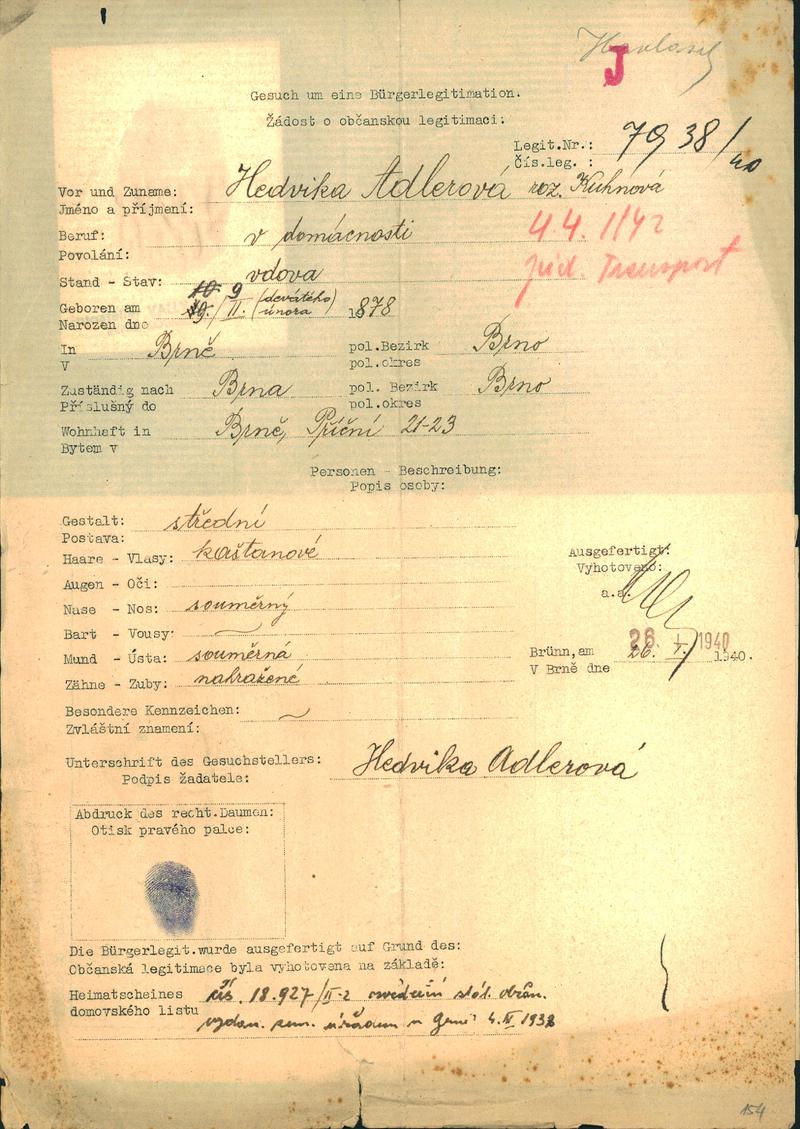 J
Gesuch um eine Bürgerlegitimation.
Žádost o občanskou legitimaci:
Legit.Nr.: 7938/40
Čís.leg. :
Vor und Zuname: Hedvika Adlerová roz. Kuhnová
Jméno a příjmení:
4.4. 1142
Beruf: v domácnosti
Povolání:
Transport
Stand - Stav: vdova
Geboren am 9 / II. (devátého února) 1878
Narozen dne
In Brně pol.Bezirk Brno
V pol.okres
Zuständig nach Brna pol. Bezirk Brno
Příslušný do pol.okres
Wohnhaft in Brně, Příční 21-23
Bytem v
Personen - Beschreibung:
Popis osoby:
Gestalt: střední
Postava:
Haare - Vlasy: kaštanové
Ausgefertigt:
Vyhotoveno:
Augen - Oči:
a.a.
Nase - Nos: souměrný
Bart - Vousy:
Mund - Ústa: souměrná
Brünn,am 26. I. 1940 1940.
V Brně dne
Zähne - Zuby: nahražené
Besondere Kennzeichen:
Zvláštní znamení:
Unterschrift des Gesuchstellers: Hedvika Adlerová
Podpis žadatele:
Abdruck des recht.Daumen:
Otisk pravého palce:
Die Bürgerlegit.wurde ausgefertigt auf Grund des:
Občanská legitimace byla vyhotovena na základě:
Heimatscheines čís. 18.927/II-2 osvědčení stát. občan.
domovského listu vydan. zem. úřadem v Brně 4.IV.1938
154